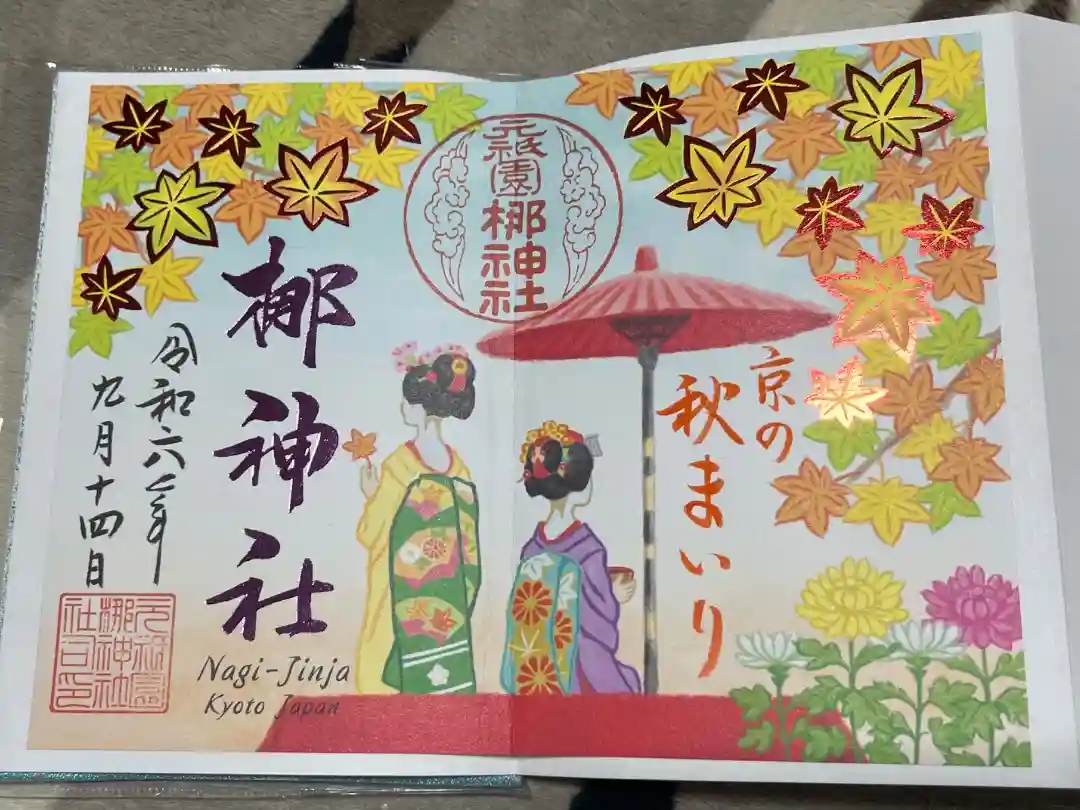 元祇園
梛神社
京の
秋まいり
梛神社
令和六年
九月十四日
元祇園
梛神社
社司之印
Nagi-Jinja
Kyoto Japan